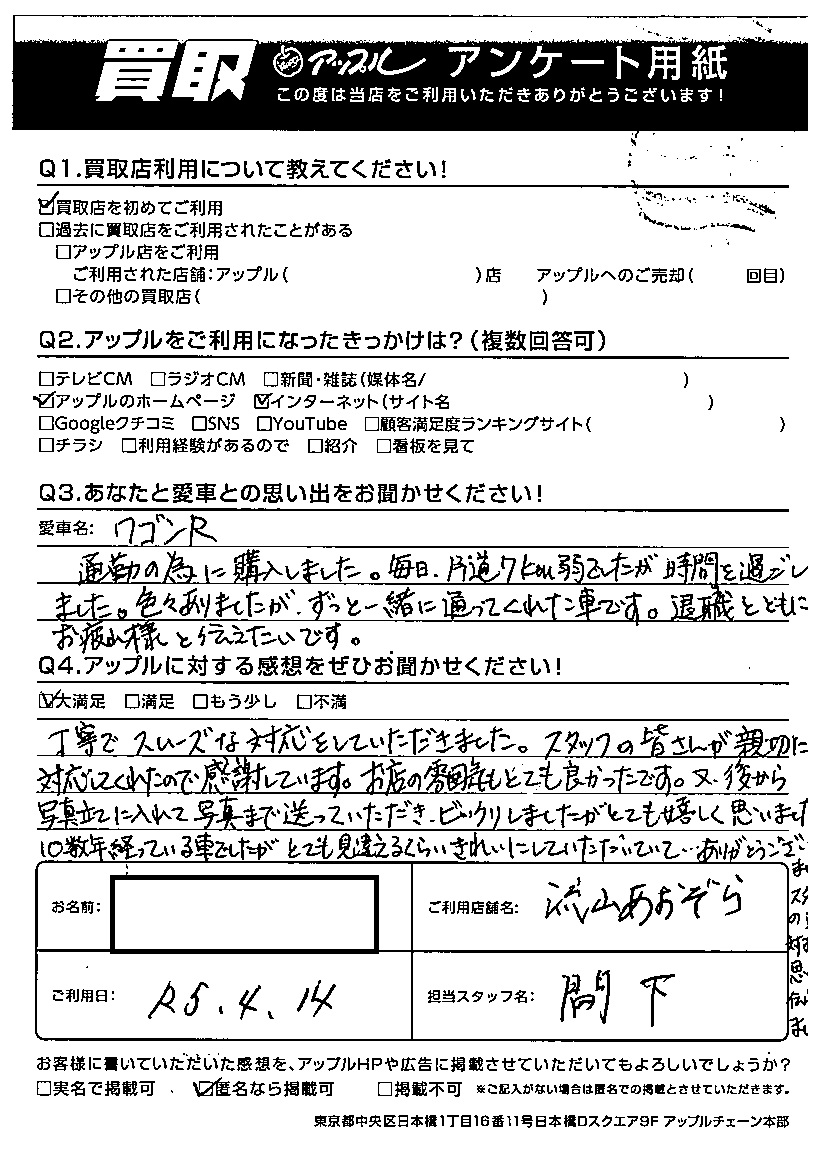 買取 アップル アンケート用紙
この度は当店をご利用いただきありがとうございます!
Q1.買取店利用について教えてください!
☑買取店を初めてご利用
□過去に買取店をご利用されたことがある
□アップル店をご利用
ご利用された店舗:アップル( )店 アップルへのご売却( 回目)
□その他の買取店( )
Q2.アップルをご利用になったきっかけは?(複数回答可)
□テレビCM □ラジオCM □新聞・雑誌(媒体名/ )
☑アップルのホームページ ☑インターネット(サイト名 )
□Googleクチコミ □SNS □YouTube □顧客満足度ランキングサイト( )
□チラシ □利用経験があるので □紹介 □看板を見て
Q3.あなたと愛車との思い出をお聞かせください!
愛車名: ワゴンR
通勤の為に購入しました。毎日、片道7km弱でしたが時間を過ごし
ました。色々ありましたが、ずっと一緒に通ってくれた車です。退職とともに
お疲れ様と伝えたいです。
Q4.アップルに対する感想をぜひお聞かせください!
☑大満足 □満足 □もう少し □不満
丁寧でスムーズな対応をしていただきました。スタッフの皆さんが親切に
対応してくれたので感謝しています。お店の雰囲気もとても良かったです。又、後から
写真立てに入れて写真まで送っていただき、ビックリしましたがとても嬉しく思いました
10数年経っている車でしたがとても見違えるくらいきれいにしていただいていて…ありがとうござい
ま
スタ
の
対応
思
伝
ま
お名前:
ご利用店舗名: 流山あおぞら
ご利用日: R5.4.14
担当スタッフ名: 間下
お客様に書いていただいた感想を、アップルHPや広告に掲載させていただいてもよろしいでしょうか?
□実名で掲載可 ☑匿名なら掲載可 □掲載不可 ※ご記入がない場合は匿名での掲載とさせていただきます。
東京都中央区日本橋1丁目16番11号日本橋Dスクエア9F アップルチェーン本部